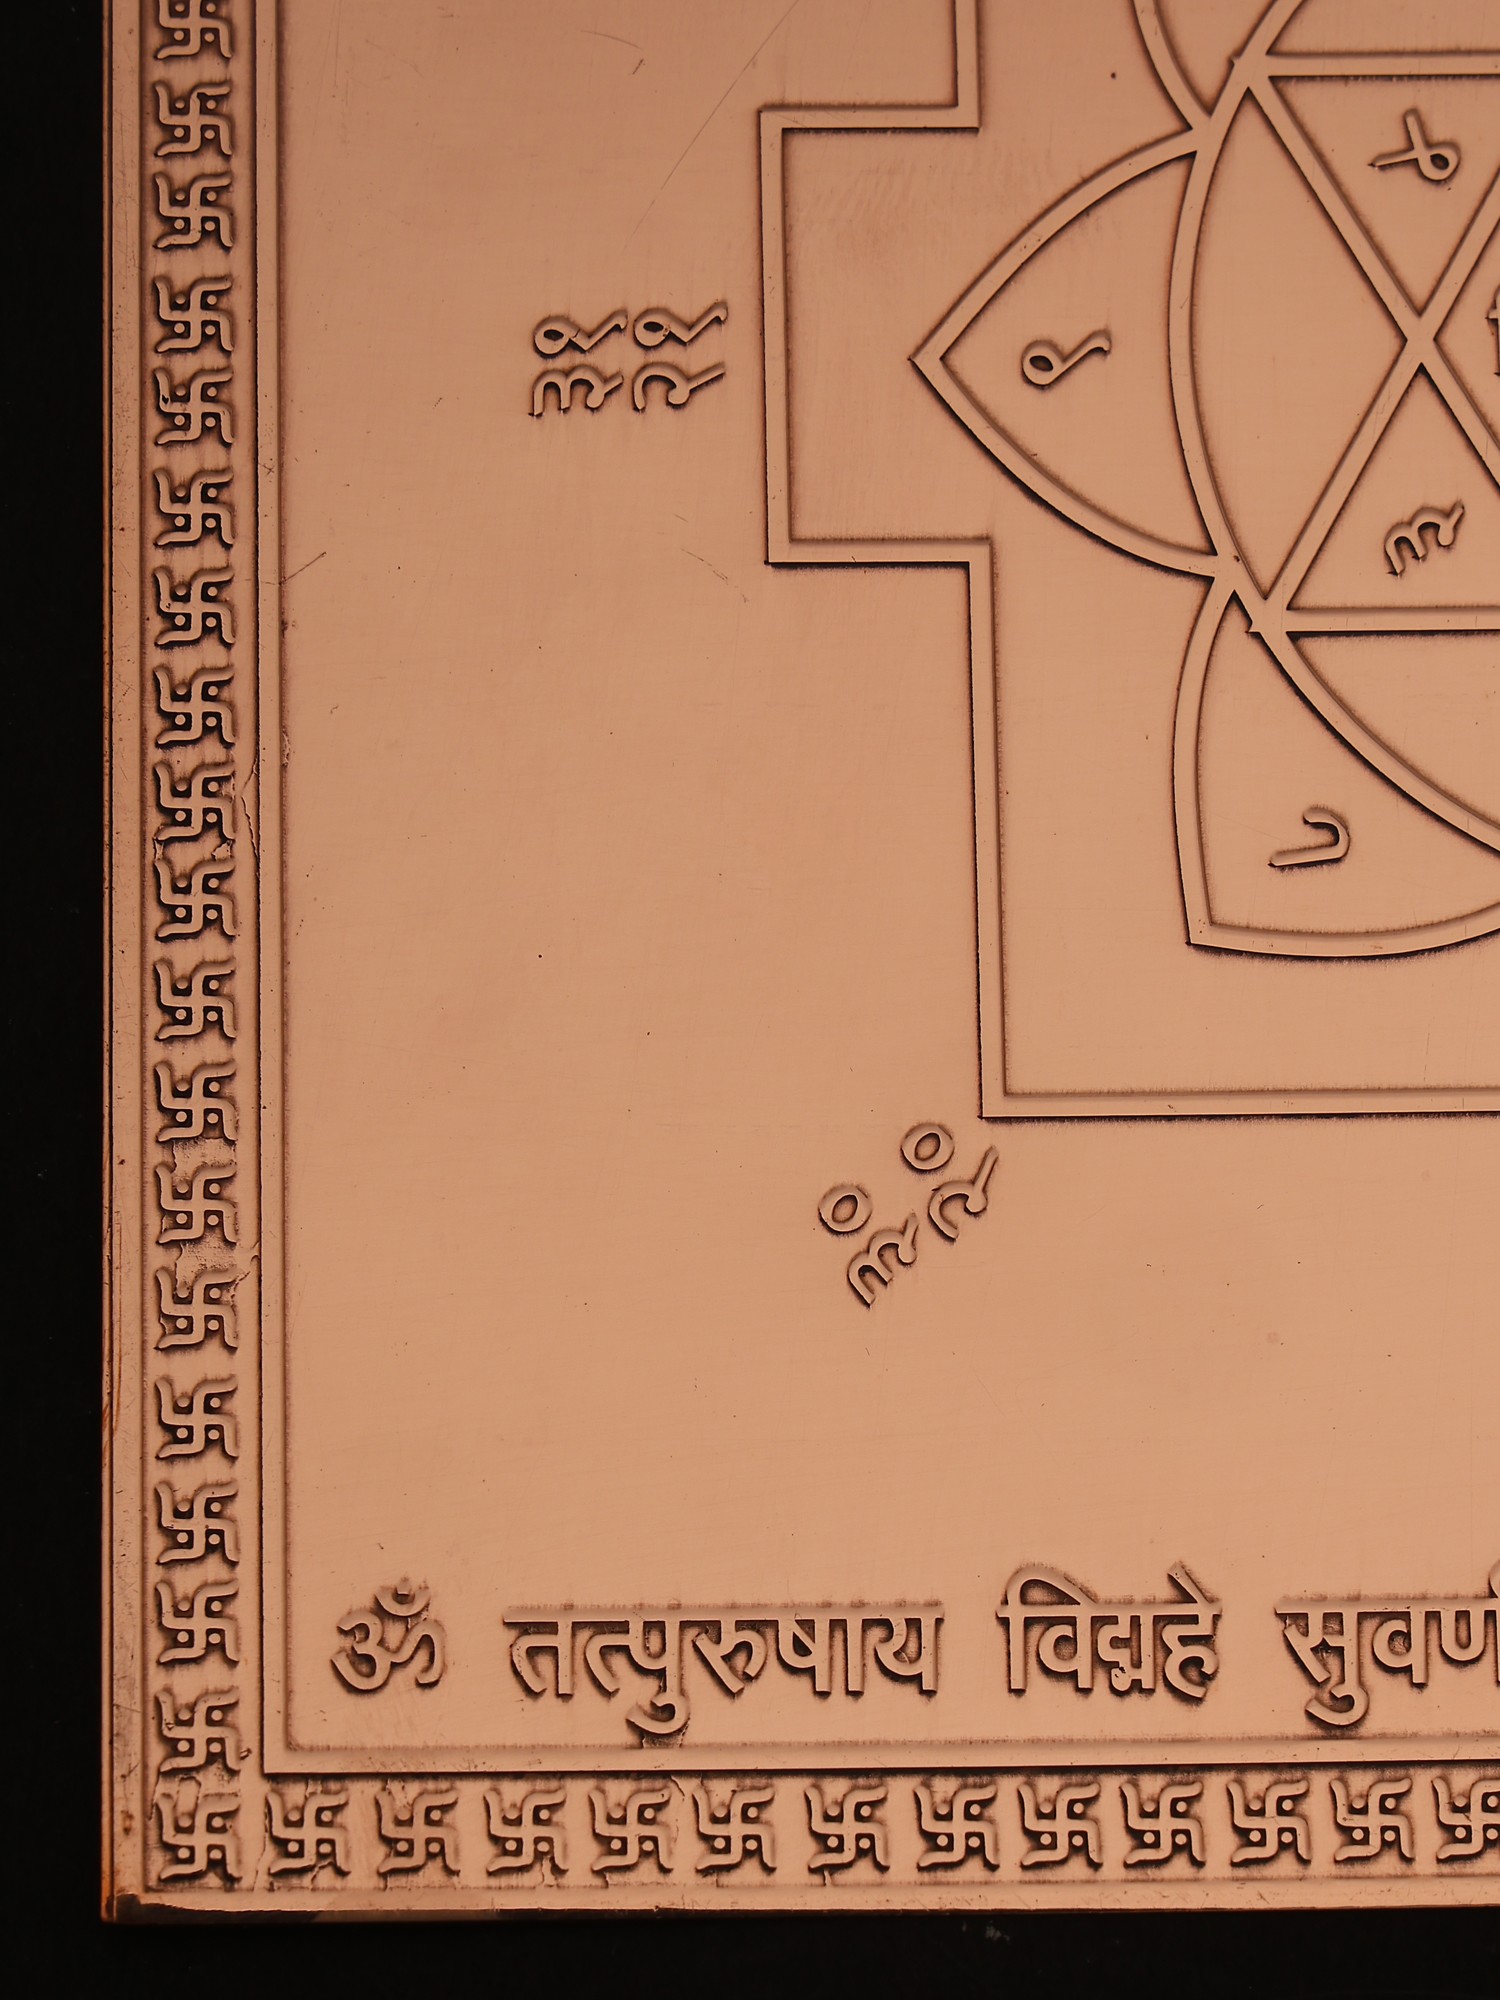 ४
१
३१
२१
३
८
२०
३०
ॐ तत्पुरुषाय विद्महे